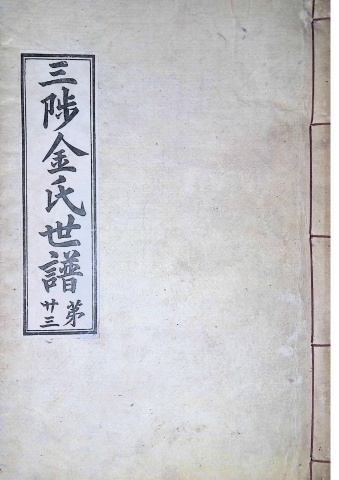 三陟金氏世譜
第
廿三